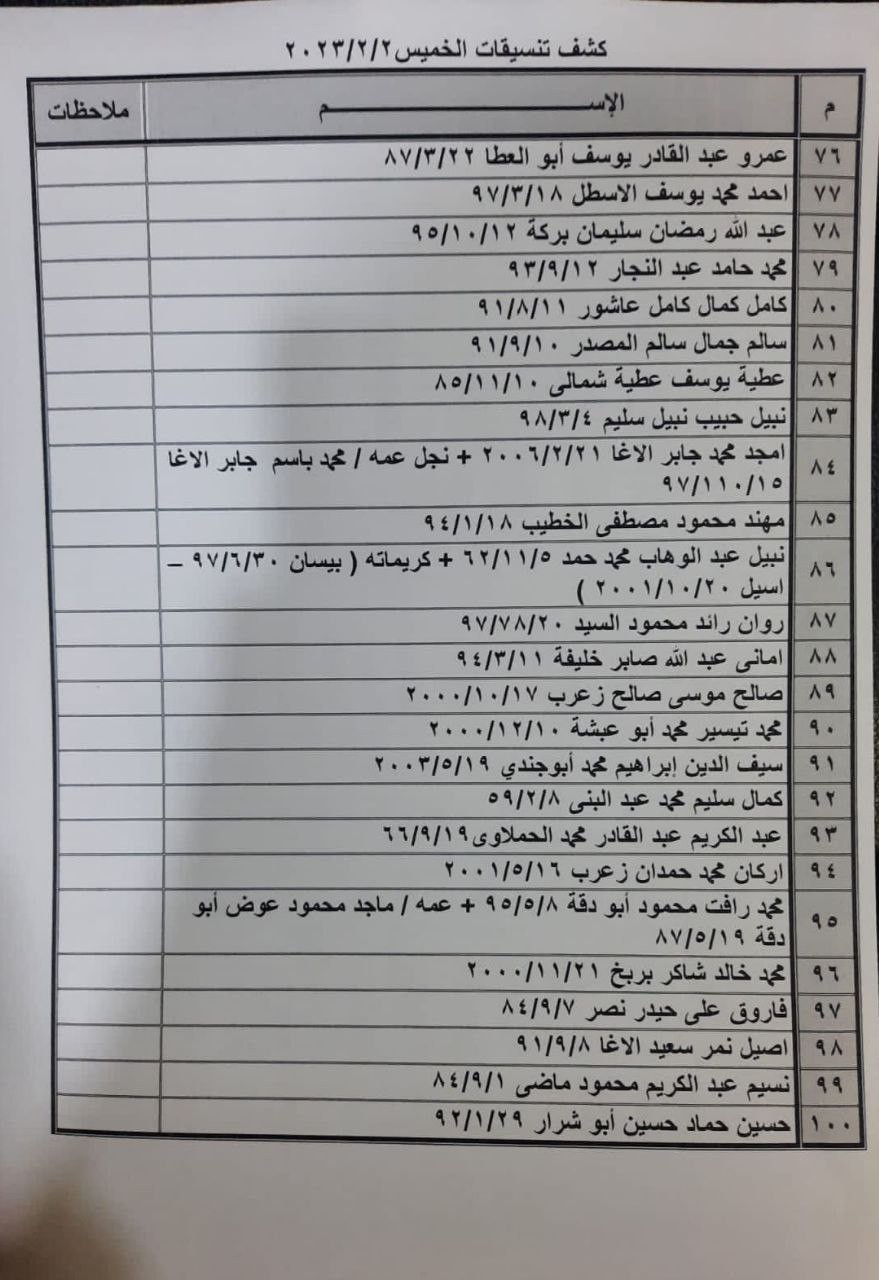 كشف تنسيقات الخميس ٢٠٢٣/٢/٢
م الإســـــــــــــــم ملاحظات
٧٦ عمرو عبد القادر يوسف أبو العطا ٨٧/٣/٢٢
٧٧ احمد محمد يوسف الاسطل ٩٧/٣/١٨
٧٨ عبد الله رمضان سليمان بركة ٩٥/١٠/١٢
٧٩ محمد حامد عبد النجار ٩٣/٩/١٢
٨٠ كامل كمال كامل عاشور ٩١/٨/١١
٨١ سالم جمال سالم المصدر ٩١/٩/١٠
٨٢ عطية يوسف عطية شمالى ٨٥/١١/١٠
٨٣ نبيل حبيب نبيل سليم ٩٨/٣/٤
٨٤ امجد محمد جابر الاغا ٢٠٠٦/٢/٢١ + نجل عمه / محمد باسم جابر الاغا
٩٧/١١٠/١٥
٨٥ مهند محمود مصطفى الخطيب ٩٤/١/١٨
٨٦ نبيل عبد الوهاب محمد حمد ٦٢/١١/٥ + كريماته ( بيسان ٩٧/٦/٣٠ –
اسيل ٢٠٠١/١٠/٢٠ )
٨٧ روان رائد محمود السيد ٩٧/٧٨/٢٠
٨٨ امانى عبد الله صابر خليفة ٩٤/٣/١١
٨٩ صالح موسى صالح زعرب ٢٠٠٠/١٠/١٧
٩٠ محمد تيسير محمد أبو عبشة ٢٠٠٠/١٢/١٠
٩١ سيف الدين إبراهيم محمد أبوجندي ٢٠٠٣/٥/١٩
٩٢ كمال سليم محمد عبد البنى ٥٩/٢/٨
٩٣ عبد الكريم عبد القادر محمد الحملاوى ٦٦/٩/١٩
٩٤ اركان محمد حمدان زعرب ٢٠٠١/٥/١٦
٩٥ محمد رافت محمود أبو دقة ٩٥/٥/٨ + عمه / ماجد محمود عوض أبو
دقة ٨٧/٥/١٩
٩٦ محمد خالد شاكر بربخ ٢٠٠٠/١١/٢١
٩٧ فاروق على حيدر نصر ٨٤/٩/٧
٩٨ اصيل نمر سعيد الاغا ٩١/٩/٨
٩٩ نسيم عبد الكريم محمود ماضى ٨٤/٩/١
١٠٠ حسين حماد حسين أبو شرار ٩٢/١/٢٩